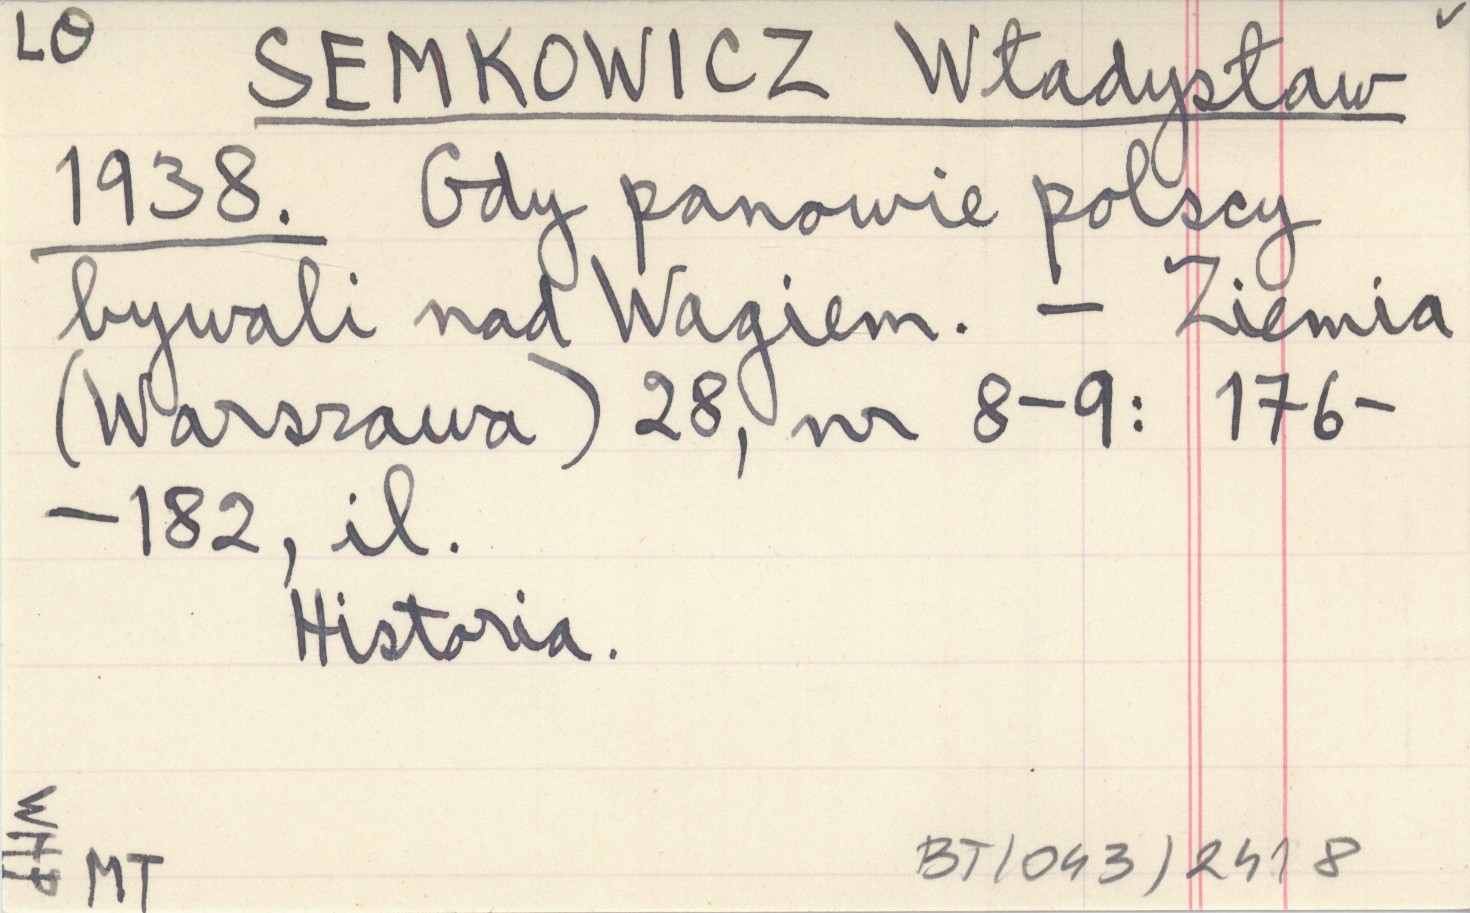 LO
SEMKOWICZ Władysław
1938. Gdy panowie polscy
bywali nad Wagiem. — Ziemia
(Warszawa) 28, nr 8-9: 176-
-182, il.
Historia.
MT
BT/043/2418